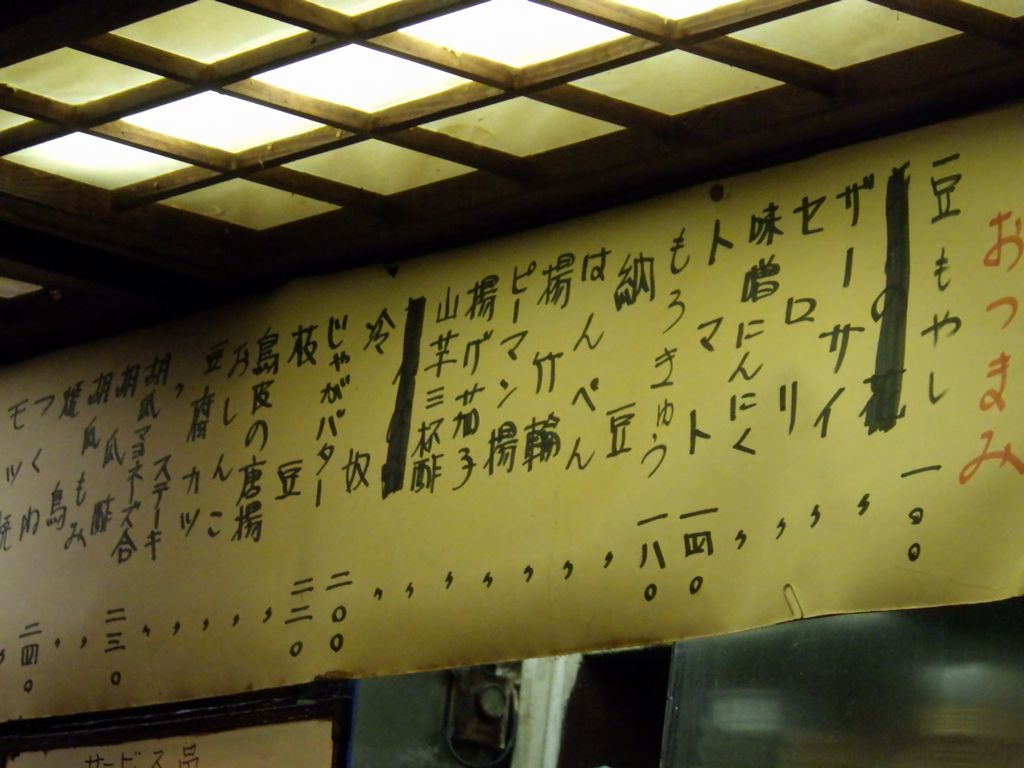 おつまみ
豆もやし 一〇〇
〃
ザーサイ 〃
セロリ 〃
味噌にんにく 〃
トマト 一四〇
もろきゅう 一八〇
納豆 〃
はんぺん 〃
揚竹輪 〃
ピーマン揚 〃
揚ゲ茄子 〃
山芋三杯酢 〃
〃
冷奴 二〇〇
じゃがバター 二二〇
枝豆 〃
鳥皮の唐揚 〃
おしんこ 〃
豆腐カツ 〃
〃ステーキ 〃
胡瓜マヨネーズ合 二三〇
胡瓜酢 〃
胡瓜もみ 〃
焼鳥 二四〇
つく 〃
モツ焼
サービス品